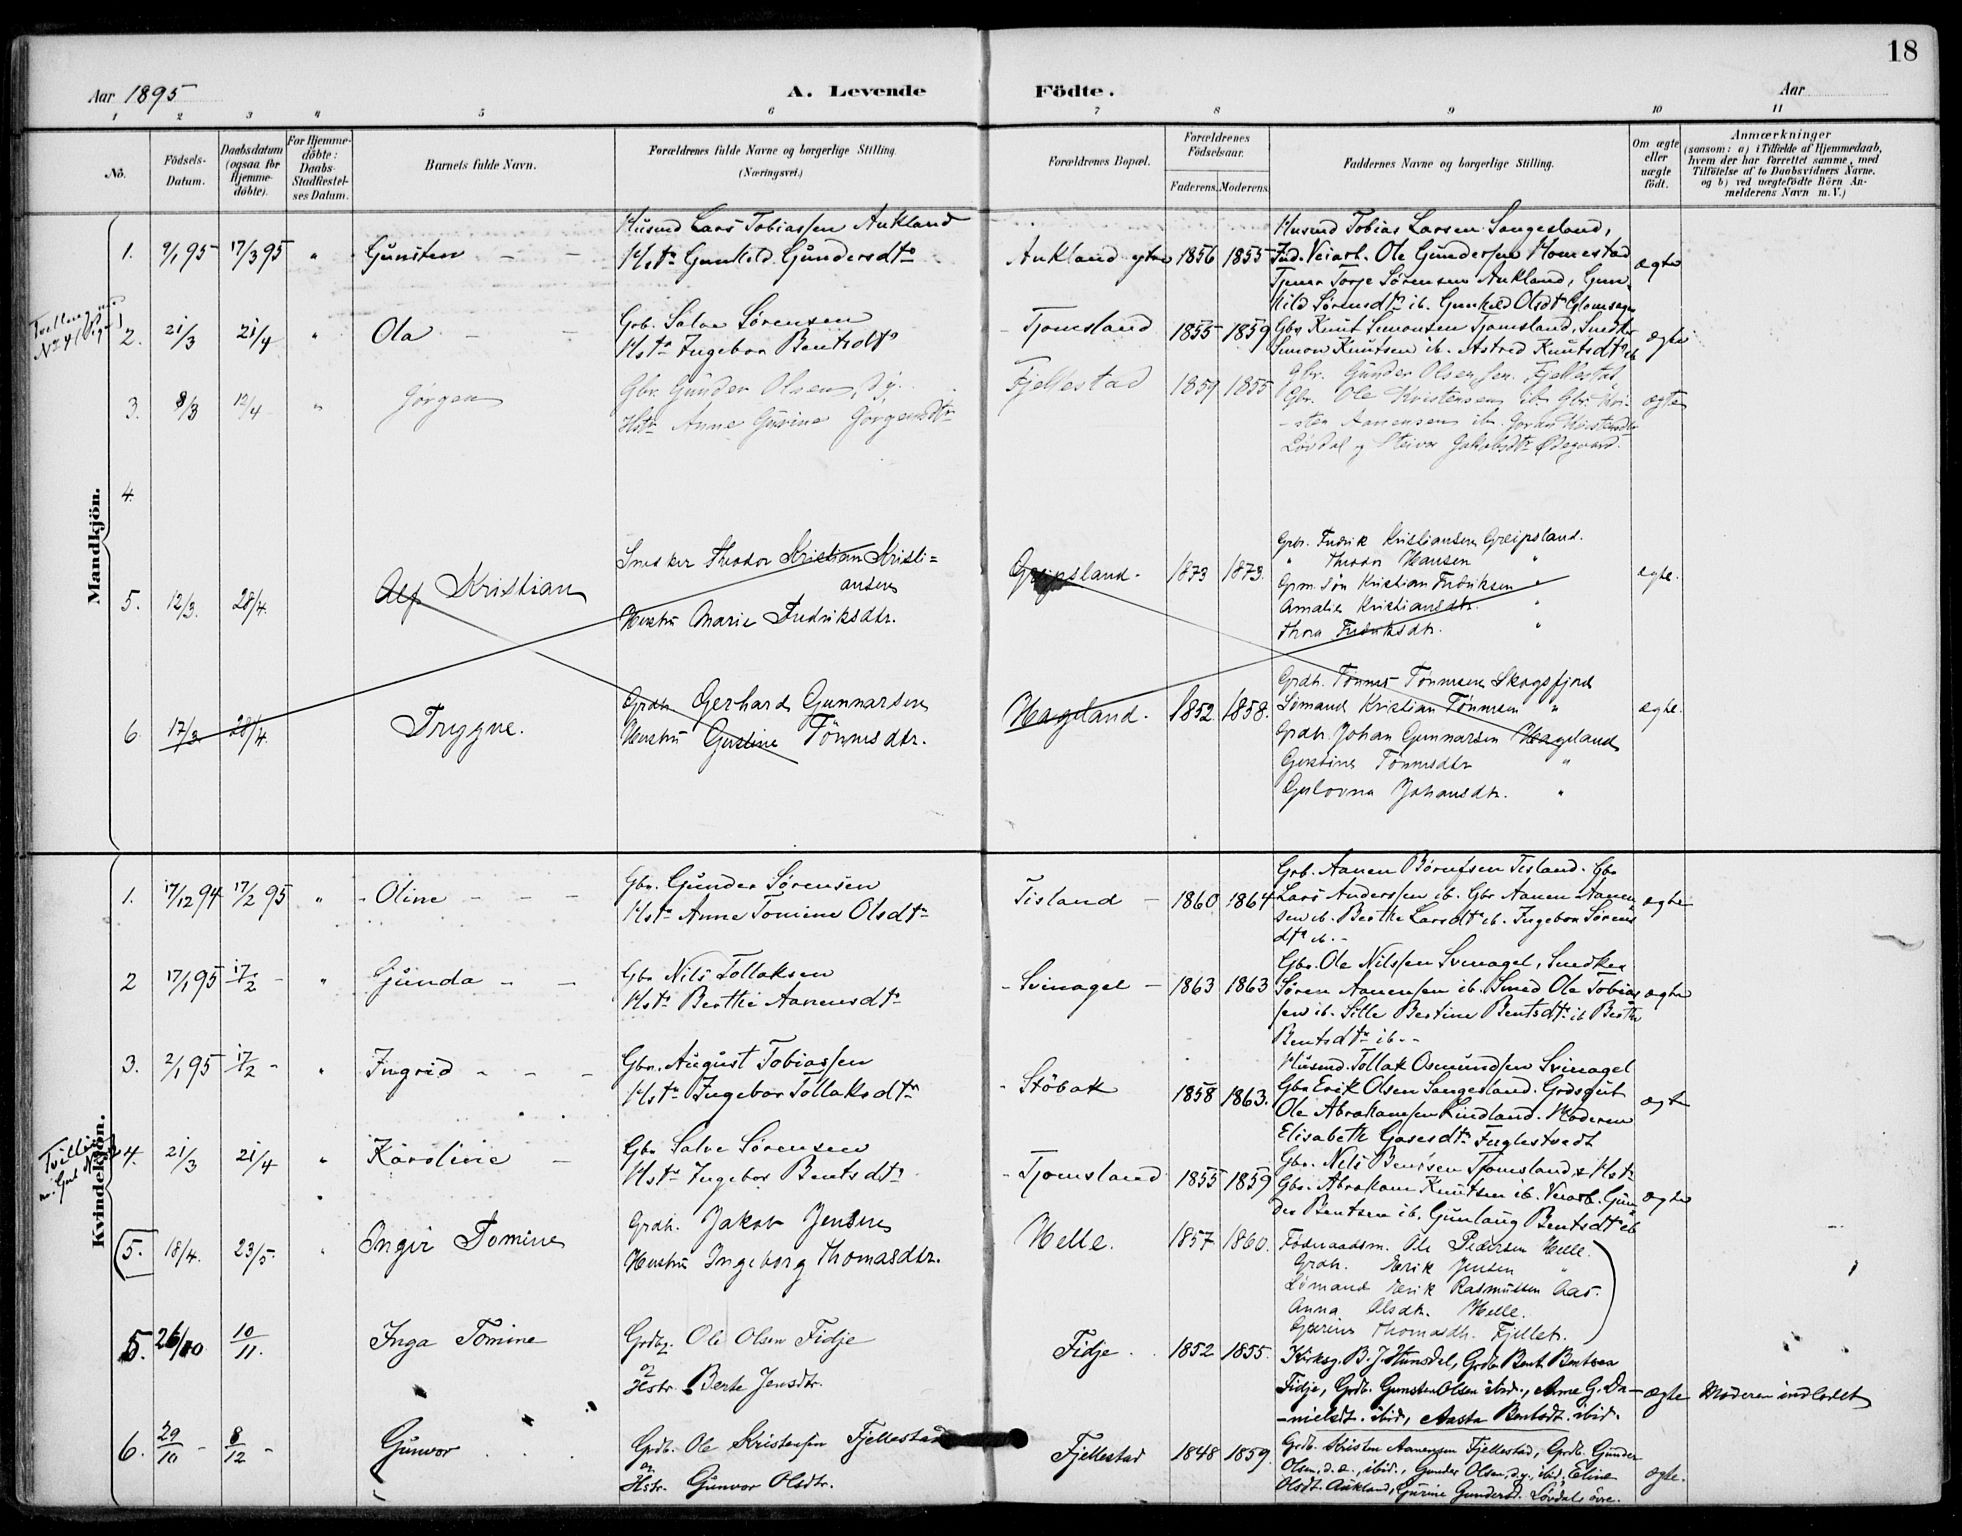 18
Aar 1895
A. Levende
Födte.
Aar
1 2 3 4 5 6 7 8 9 10 11
No.
Födsels-Datum.
Daabsdatum (ogsaa for Hjemme-döbte).
For Hjemme-döbte: Daabs-Stadfæstel-ses Datum.
Barnets fulde Navn.
Forældrenes fulde Navne og borgerlige Stilling (Næringsvei.)
Forældrenes Bopæl.
Forældrenes Födselsaar.
Faderens. Moderens.
Faddernes Navne og borgerlige Stilling.
Om ægte eller uægte födt.
Anmærkninger
(saasom: a) i Tilfælde af Hjemmedaab, hvem der har forrettet samme, med Tilföielse af to Daabsvidners Navne, og b) ved uægtefödte Börn An-melderens Navn m. V.)
Mandkjön.
1. 9/1 95 17/3 95 " Gunsten - -
Husmd Lars Tobiassen Aukland
Hst. Gunhild Gundersdtr
Aukland ytre 1856 1855
Husmd Tobias Larsen Sangesland,
Ind. Veiarb. Ole Gundersen Homestad
Tjener Torje Sörensen Aukland, Gun-
hild Sörensdtr ib. Gunhild Olsdt
ægte
2. 21/3 21/4 " Ola -
Gb. Salve Sörensen
Hst. Ingebor Bentsdtr
Tjomsland 1855 1859
Gbr Knut Simonsen Tjomsland, Snedker
Simon Knutsen ib. Astrid Knutsdtr ib
ægte
3. 8/3 12/4 " Jörgen
Gbr. Gunder Olsen, d.y.
Hstr. Anne Gurine Jörgensdtr
Fjellestad 1859 1855
Gbr. Gunder Olsen sen. Fjellestad
Gbr. Ole Kristensen ib. Gbr. Kri-
-sten Aanensen ib.
Lövdal og Jakobsdtr Ödegaard.
ægte
4.
5. 12/3. 28/4. Alf Kristian
Snedker Theodor Kristian Kristi=
ansen
Hustru Marie Fredriksdtr.
Greipsland. 1873 1873.
Gbr. Fredrik Kristiansen Greipsland.
" Theodor Hansen "
Grm. Søn Kristian Fredriksen "
Amalie Kristiansdtr. "
Thora Fredriksdtr. "
ægte.
6. 17/3. 28/4. Tryggve.
Grdb. Gerhard Gunnarsen
Hustru Gustine Tönnesdtr.
Hageland. 1852. 1858.
Grdb. Tönnes Tönnesen Skogsfjord
Sömand Kristian Tönnesen "
Grdb. Johan Gunnarsen Hageland
Gustine Tönnesdtr "
Gulovna Johansdtr. "
ægte.
Kvindekjön.
1. 17/12 94 17/2 95 " - Oline - - -
Gbr. Gunder Sörensen
Hst. Anne Tomine Olsdtr
Tisland - 1860 1864
Grb. Aanen Börufsen Tisland. Gbr
Lars Anderssen ib. Gbr Aanen Aanen
sen ib. Berthe Larsdtr ib. Ingebor Sörens
dtr ib. -
ægte
2 17/1 95 17/2 - " Gunda - -
Gbr Nils Tollaksen
Hst. Berthe Aanensdtr
- Svinagel - 1863 1863
Gbr. Ole Nilssen Svinagel, Snedker
Sören Aanensen ib. Smed Ole Tobias
sen ib. Sille Bertine Bentsdtr ib Berthe
Bentsdtr ib. -
ægte
3. 2/1 95 17/2 - " Ingrid - - -
Gbr. August Tobiassen
Hst. Ingebor Tollaksdtr
- Stöbak 1858 1863.
Husmd. Tollak Osmundsen Svinagel
Gbr Erik Olsen Sangesland. Grdsgut
Ole Abrahamsen Lindland. Moderen
Elisabeth Fuglestvedt
ægte
4. 21/3 21/4 " Karoline -
Gbr Salve Sörensen
Hst. Ingebor Bentsdtr
- Tjomsland 1855 1859
Gbr. Nils Bentsen Tjomsland & Hstr
Gbr. Abraham Knutsen ib. Veiarb. Gun
der Bentsen ib. Gunlaug Bentsdtr ib
ægte
5. 18/4. 23/5. " Inger Tomine
Grdb. Jakob Jensen
Hustru Ingeborg Thomasdtr.
Helle. 1857 1860.
Föderaadsm. Ole Pedersen Helle.
Grdb. Erik Jensen "
Sömand Erik Rasmussen Aas.
Anna Olsdtr. Helle.
Gurine Thomasdtr. Fjellet.
5. 26/10 10/11. Inga Tomine
Grdbr. Ole Olsen Fidje
og
Hstr. Berte Jensdtr.
Fidje. 1852 1855.
Kirkesg. B. J. Hunsdal, Grdb. Bent Bentsen
Fidje, Grdb. Gunsten Olsen ibid., Anne G. Da-
-nielsdt. ibid, Aasta Bentsdt. ibid.
ægte Moderen indledet
6. 29/10 - 8/12 - Gunvor
Grdb. Ole Kristensen Fjellestad
og
Hstr. Gunvor Olsdtr.
Fjellestad 1848 1859.
Grdb. Kristen Aanensen Fjellestad, Grdb. Gunder
Olsen, d. e., ibid., Gunder Olsen, d.y., ibid, Eline
Olsdt. Aukland, Gurine Gundersd. Lövdal övre.
ægte.